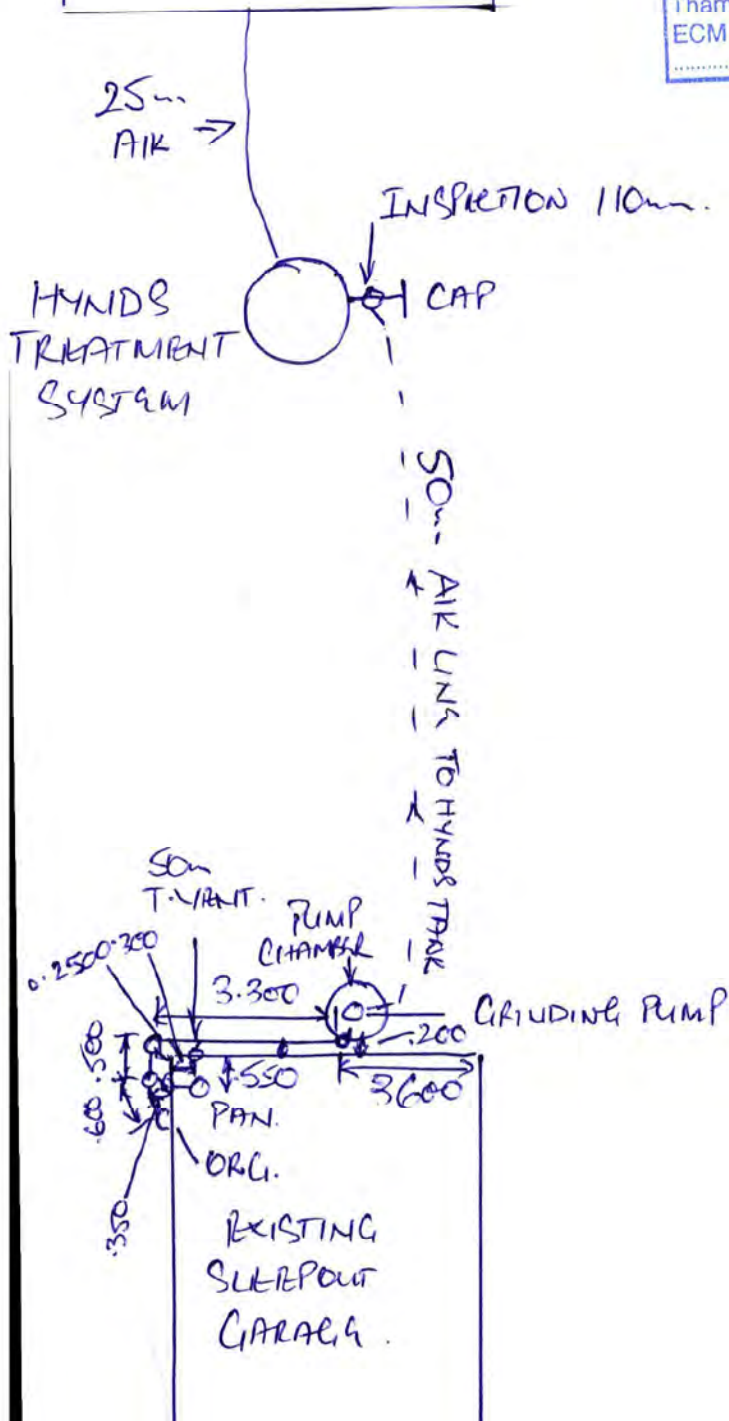 Tham
ECM
25m
AIK
INSPECTION 110m.
CAP
HYNDS
TREATMENT
SYSTEM
50m AIK LINE TO HYNDS TANK
50m
T.VENT.
PUMP
CHAMBER
3.300
GRINDING PUMP
.200
.300
.500
.550
3600
.600
PAN.
ORG.
.350
EXISTING
SLEEPOUT
GARAGE.